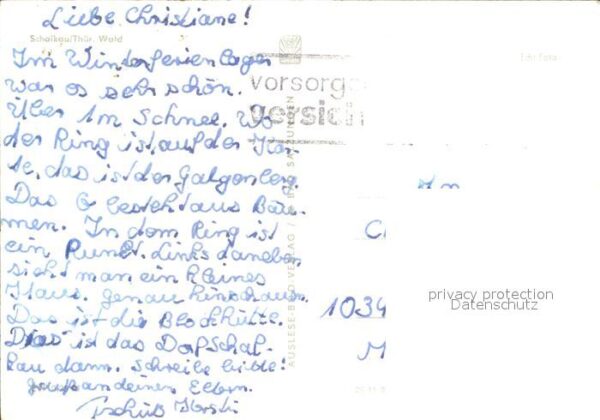 Liebe Christiane!
Schalkau/Thür. Wald
Im Winterferienlager
war es sehr schön.
Über 1m Schnee. Wo
der Ring ist auf der Kar-
te, das ist der Galgenberg.
Das G besteht aus Bäu-
men. In dem Ring ist
ein Punkt. Links daneben
sieht man ein kleines
Haus. genau hinschauen.
Das ist die Blockhütte.
Das ist das Dorf Schal-
kau dann. Schreibe bitte!
gruß an deinen Eltern.
Tschüß
vorsorge
versich
AUSLESE-BILD-VERLAG / BAD SALZUNGEN
An
1034
M
privacy protection
Datenschutz